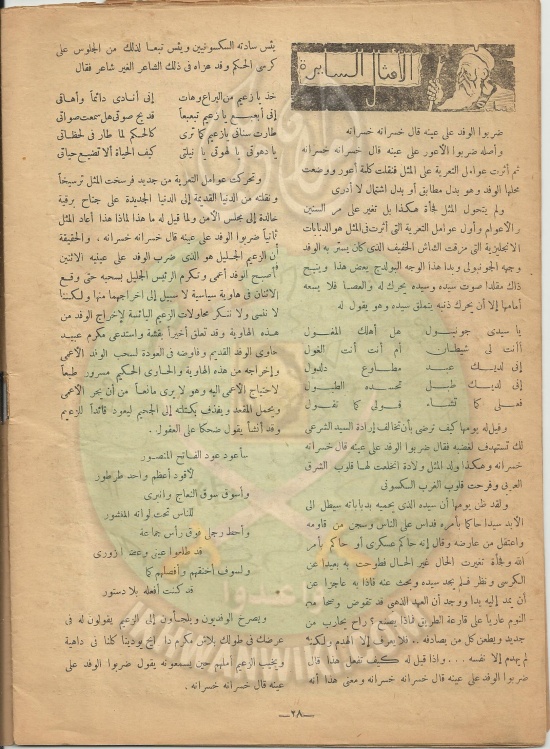 الأمثال السايرة
ضربوا الوفد على عينه قال خسرانه خسرانه
وأصله ضربوا الأعور على عينه قال خسرانه خسرانه
ثم أثرت عوامل التعرية على المثل فنقلت كلمة أعور ووضعت
محلها الوفد وهو بدل مطابق أو بدل اشتمال لا أدرى
ولم يتحول المثل فجأة هكذا بل تغير على مر السنين
والأعوام وأول عوامل التعرية التى أثرت فى المثل هو الدبابات
الانجليزية التى مزقت القماش الخفيف الذى كان يستر به الوفد
وجهه الجونبولى وبدا هذا الوجه البولدج بعض هذا وينبح
ذاك مقلدا صوت سيده وسيده يحركه له والعصا فلا يسعه
أمامها إلا أن يحرك ذنبه يتملق سيده وهو يقول له
يا سيدى جونبول هل أهلك المغول
أأنت لى شيطان أم أنت أنت الغول
إنى لديك عبد مطاوع ذلول
إنى لديك طبل تحسده الطبول
فعلى كما تشاء قولى كما تقول
وقيل له يومها كيف ترضى بأن تخالف إرادة السيد الشرعى
لك تستهدف لغضبه فقال ضربوا الوفد على عينه قال خسرانه
خسرانه وهكذا ولد المثل ولادة انخلعت لها قلوب الشرق
العربى وفرحت قلوب الغرب السكسونى
ولقد ظن يومها أن سيده الذى يحميه بدباباته سيظل الى
الأبد سيدا حاكما بأمره فداس على الناس وسجن من قاومه
واعتقل من عارضه وقال إنه حاكم عسكرى أو حاكم بأمر
الله وفجأة تغيرت الحال غير الحال فطوحت به بعيدا عن
الكرسى ونظر فلم يجد سيده وبحث عنه فاذا به عاجزا عن
أن يمد إليه يدا ووجد أن العهد الذهبى قد تقوض وصحا من
النوم عاريا على قارعة الطريق فماذا يصنع ؟ راح يحارب من
جديد ويطعن كل من يصادفه .. فلا يعرف إلا الهدم ولكنه
لم يهدم إلا نفسه ... واذا قيل له كيف تفعل هذا قال
ضربوا الوفد على عينه قال خسرانه خسرانه ومعنى هذا أنه
يئس سادته السكسونيين ويئس تبعا لذلك من الجلوس على
كرسى الحكم وقد هزاه فى ذلك الشاعر الغير شاعر فقال
خذ يا زعيم من اليراع وهات إنى أنادى دائماً وأهاتى
إنى أبعبع يا زعيم تبعبعاً قد بح صوتى هل سمعت صواتى
طارت سناتى يا زعيم كما ترى كالحكم لما طار فى لحظاتى
يا دهوتى يا لهوتى يا نيلتى كيف الحياة ألا تضيع حياتى
وتحركت عوامل التعرية من جديد فرسخت المثل ترسيخاً
ونقلته من الدنيا القديمة إلى الدنيا الجديدة على جناح برقية
خالدة إلى مجلس الأمن ولما قيل له ما هذا لماذا هذا أعاد المثل
ثانياً ضربوا الوفد على عينه قال خسرانه خسرانه ، والحقيقة
أن الزعيم الجليل هو الذى ضرب الوفد على عينيه الاثنين
فأصبح الوفد أعمى وتكرم الرئيس الجليل بسحبه حتى وقع
الاثنان فى هاوية سياسية لا سبيل إلى اخراجهما منها ولكننا
لا ننسى ولا ننكر محاولات الزعيم اليائسة لإخراج الوفد من
هذه الهاوية وقد تعلق أخيراً بقشة واستدعى مكرم عبيد
حاوى الوفد القديم وفاوضه فى العودة لسحب الوفد الأعمى
وإخراجه من هذه الهاوية والحاوى الحكيم مسرور طبعاً
لاحتياج الأعمى اليه وهو لا يرى مانعاً من أن يجر الأعمى
ويحمل المقعد ويقذف بكتلته إلى الجحيم ليعود قائداً للزعيم
وقد أنشأ يقول ضحكا على العقول .
سأعود عود الفاتح المنصور
لأقود أعظم واحد طرطور
وأسوق سوق النعاج وانبرى
للناس تحت لوائه المغشور
وأحط رجلى فوق رأس جماعة
قد طلعوا عينى وعضوا زورى
ولسوف أخنقهم وأفصلهم كما
قد كنت أفعله بلا دستور
ويصرخ الوفديون ويلجأون إلى الزعيم يقولون له فى
عرضك فى طولك بلاش مكرم دا رايح يودينا كلنا فى داهية
ويخيب الزعيم أملهم حين يسمعونه يقول ضربوا الوفد على
عينه قال خسرانه خسرانه .
—٢٨—
واعدوا